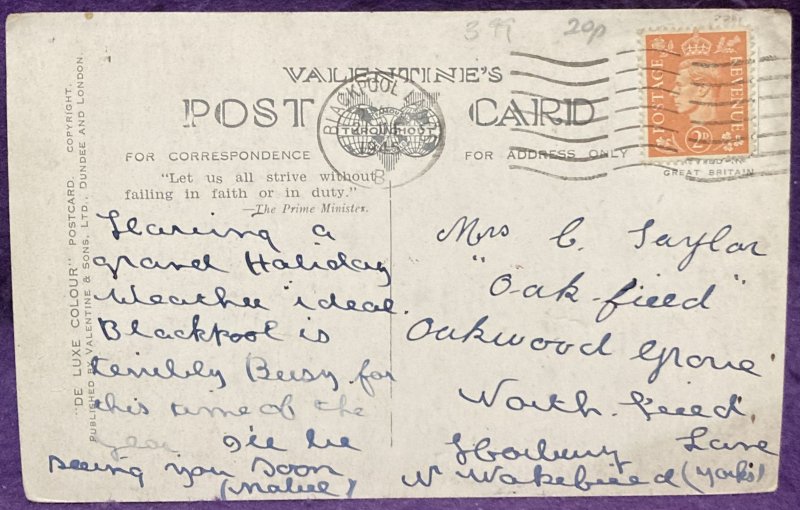 39 20p
VALENTINE'S
POST CARD
BLACKPOOL
1945
8
THROUGHOUT
FOR CORRESPONDENCE
FOR ADDRESS ONLY
"Let us all strive without
failing in faith or in duty."
—The Prime Minister.
POSTAGE REVENUE
2D
GREAT BRITAIN
"DE LUXE COLOUR" POSTCARD. COPYRIGHT.
PUBLISHED BY VALENTINE & SONS, LTD., DUNDEE AND LONDON.
Having a
grand Holiday
Weather "ideal.
Blackpool is
terribly Busy for
this time of the
year I'll be
seeing you soon
(Mabel)
Mrs C. Taylor
"Oak-field"
Oakwood Grove
North-field
Horbury Lane
Nr Wakefield (Yorks)